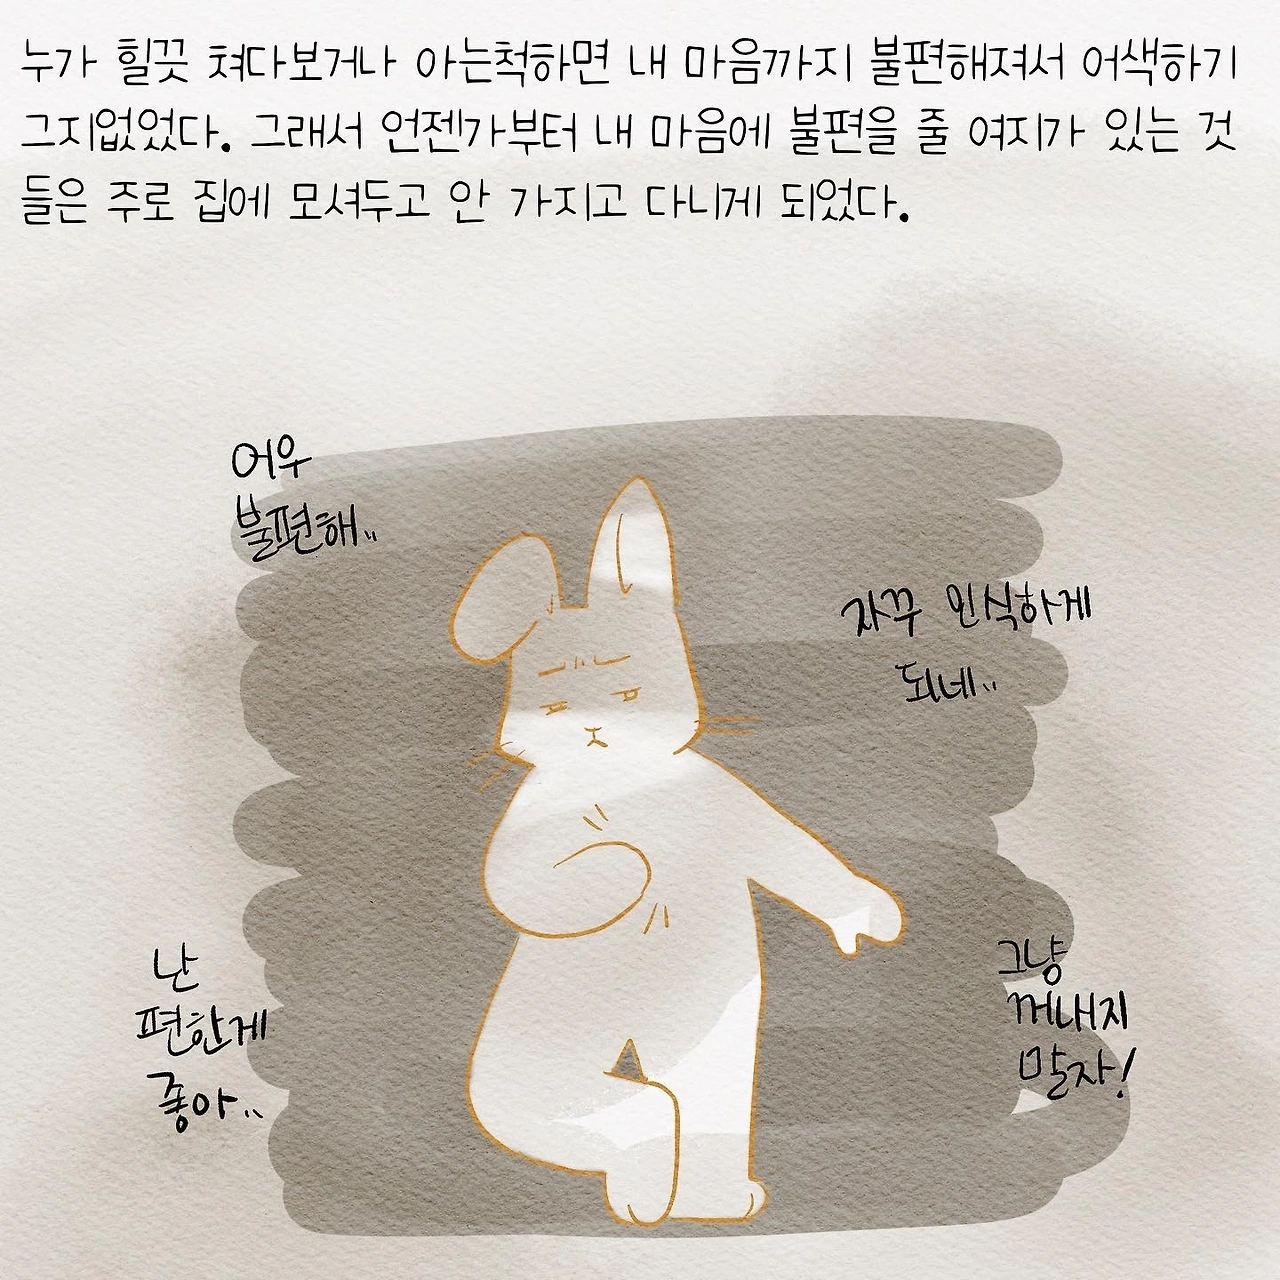 누가 힐끗 쳐다보거나 아는척하면 내 마음까지 불편해져서 어색하기
그지없었다. 그래서 언젠가부터 내 마음에 불편을 줄 여지가 있는 것
들은 주로 집에 모셔두고 안 가지고 다니게 되었다.
어우
불편해..
자꾸 인식하게
되네..
난
편한게
좋아..
그냥
꺼내지
말자!